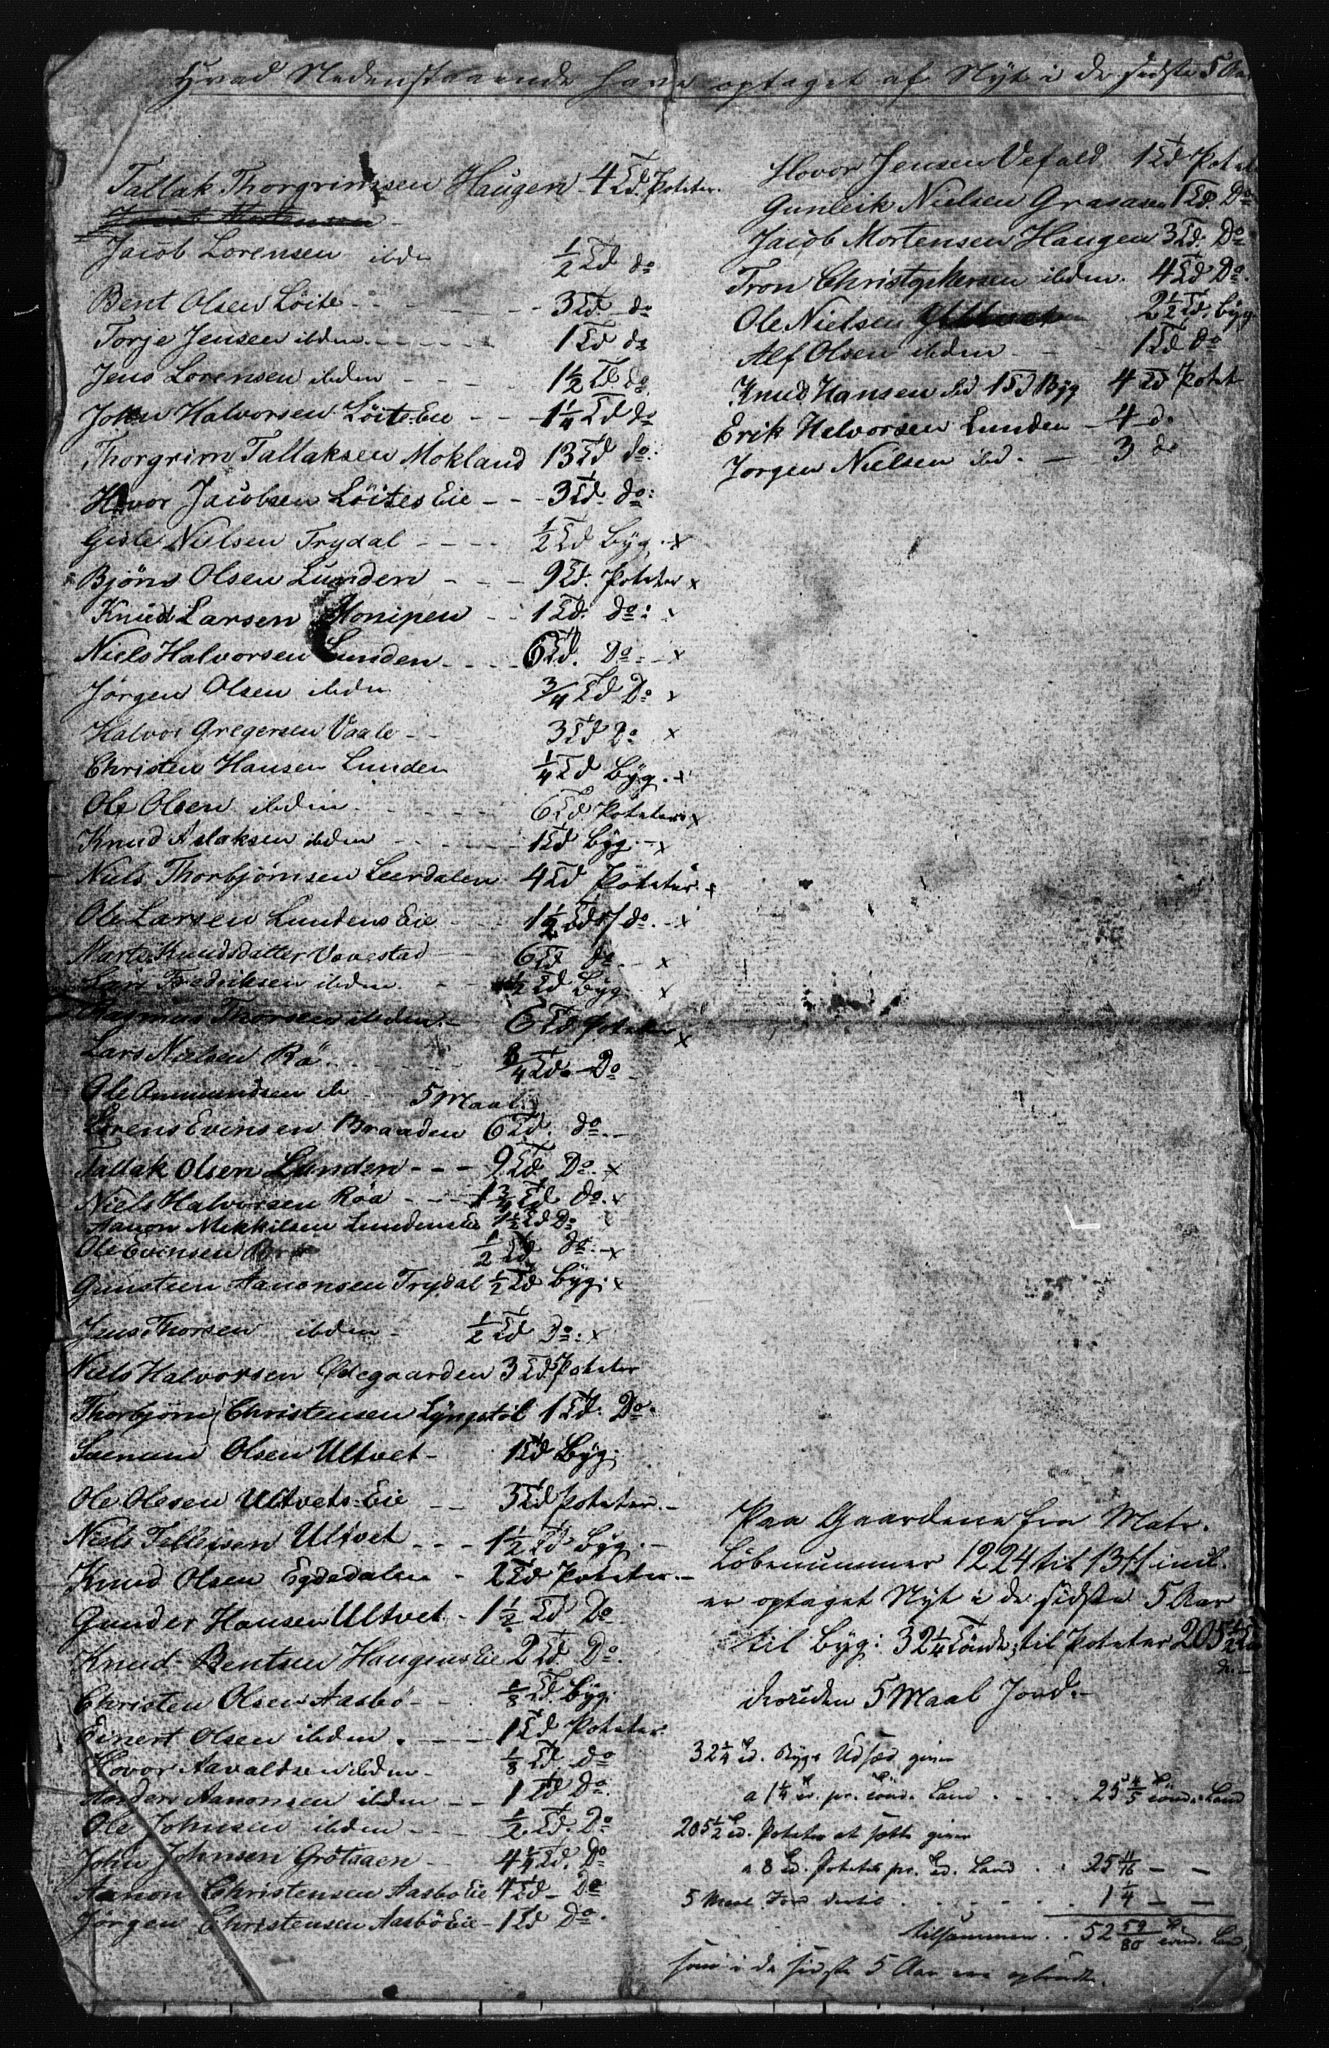 Hvad Nedenstaaende have optaget af Nyt i de sidste 5 Aar
Tallak Thorgrimsen Haugen - 4 Td Poteter.
Jacob Mortensen
Jacob Lorensen ibden ½ Td do
Bent Olsen Löite - - - 3 Td do
Torje Jensen ibden - - - 1 Td do
Jens Lorensen ibden - - - 1½ Td do
John Halvorsen Löites Eie - - 1¼ Td do
Thorgrim Tallaksen Mokland 13 Td do:
Hovor Jacobsen Löites Eie - - 3 Td. do:
Gisle Nielsen Trydal - - - - ½ Td Byg. x
Bjöns Olsen Lunden - - - 9 Td. Poteter x
Knud Larsen Monipen - - 1 Td. do: x
Niels Halvorsen Lunden - - - - 6 Td. Do - x
Jørgen Olsen ibdn ¾ Td Do x
Halvor Gregersen Vaale - - 3 Td Do x
Christen Hansen Lunden ¼ Td Byg. x
Ole Olsen ibden - - - 6 Td Poteter x
Knud Aslaksen ibden - - - 1 Td Byg - x
Niels Thorbjørnsen Leerdalen 4 Td Poteter x
Ole Larsen Lundens Eie - 1½ Td do. - x
Marte Knudsdatter Vovestad - 6 Td do - x
Lars Fredriksen ibden - - ½ Td Byg x
Rasmus Thorsen ibden - 6 Td Poteter x
Lars Nielsen Rö - - - ¾ Td - Do
Ole Ommundsen do 5 Maal x
Lorens Evensen Braaden 6 Td. do -
Tallak Olsen Lunden - - - 9 Td. Do. x
Niels Halvorsen Røa - - - 1¾ Td do. x
Aanon Mikkilsen Lundens Eie 1½ Td Do
Ole Evensen Brö ½ Td do. - x
Gunsteen Aanonsen Trydal ½ Td Byg x
Jens Thorsen ibden - ½ Td Do: x
Niels Halvorsen Ødegaarden 3 Td Poteter
Thorbjörn Christensen Lyngstöl 1 Td. Do.
Olsen Ultvet - 1 Td Byg.
Ole Olesen Ultvets Eie - - 3 Td Poteter. -
Niels Tellefsen Ultvet - - - 1½ Td Byg. -
Knud Olsen Egdedalen - 2 Td Poteter. -
Gunder Hansen Ultvet - 1½ Td Do
Knud Bentsen Haugens Eie 2 Td Do.
Christen Olsen Aasbö - - ⅛ Td. Byg.
Einert Olsen ibden. - - - 1 Td Poteter.
Hovor Aavaldsen ibden - ⅛ Td do
Anders Aanonsen ibden - - 1 Td Do.
Ole Johnsen ibden - - - ½ Td. Do
John Johnsen Grötsaen - 4¼ Td. Do
Aanon Christensen Aasbö Eie 4 Td - Do
Jørgen Christensen Aasbö Eie - 1 Td Do.
Hovor Jensen Vefald 1 Td Poteter
Gunleik Nielsen Grasaasen 1 Td. Do
Jacob Mortensen Haugen 3 Td. Do
Tron Christophersen ibden. 4 Td Do.
Ole Nielsen 2½ Td. Byg
Alf Olsen ibden - - 1 Td do
Knud Hansen ibd 1 Td Byg 4 Td Potet
Erik Halvorsen Lunden - 4 - do
Jørgen Nielsen ibd. - 3 do
Paa Gaardene fra Matr.
Löbenummer 1224 til incl.
er optaget Nyt i de sidste 5 Aar
til Byg: 32¼ Tönde; til Poteter 205½ Td
desuden 5 Maal Jord. -
32¼ Td. Byg Udsæd giver
a 1¼ Td. pr. tönde Land . . . . 25⅘ tönde Land
205½ Td. Poteter at sætte giver
a 8 Td. Poteter pr. Td. Land . . 25 11/16 - -
5 Maal Jord dertil . . . . . 1¼ - -
tilsammen . . 52 59/80 tönd. Land
som i de sidste 5 Aar ere opbrudte.